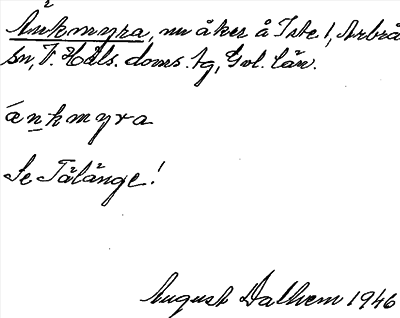 Ånkmyra, nu åker å Iste 1, Arbrå
sn, V. Häls. doms. tg, Gvl. län.
ánkmyra
Se Tålånge!
August Dalhem 1946